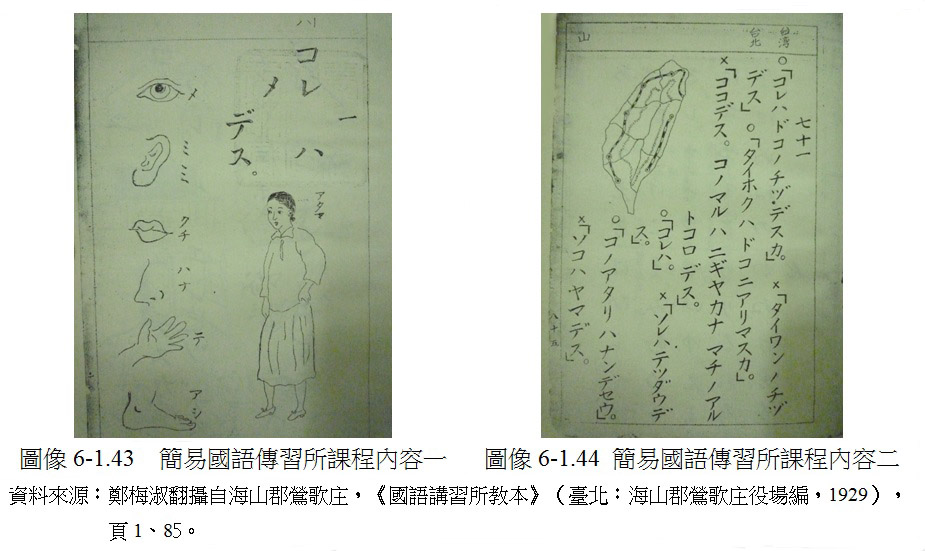 川
一
コレ ハ
メ
デス。
メ
ミミ
クチ
ハナ
テ
アシ
アタマ
山
台湾
台北
七十一
○「コレハ ドコノチヅデスカ。」 ×「タイワンノチヅ
デス」 ○「タイホクハ ドコ ニアリマスカ。」
×「ココデス。コノマル ハ ニギヤカナ マチノ アル
トコロ デス。」
○「コレハ。」 ×「ソレハ テツダウデ
ス。」
○「コノアタリ ハナンデセウ。」
×「ソコハヤマデス」。
八十五
圖像 6-1.43 簡易國語傳習所課程內容一
圖像 6-1.44 簡易國語傳習所課程內容二
資料來源：鄭梅淑翻攝自海山郡鶯歌庄，《國語講習所教本》（臺北：海山郡鶯歌庄役場編，1929），
頁 1、85。